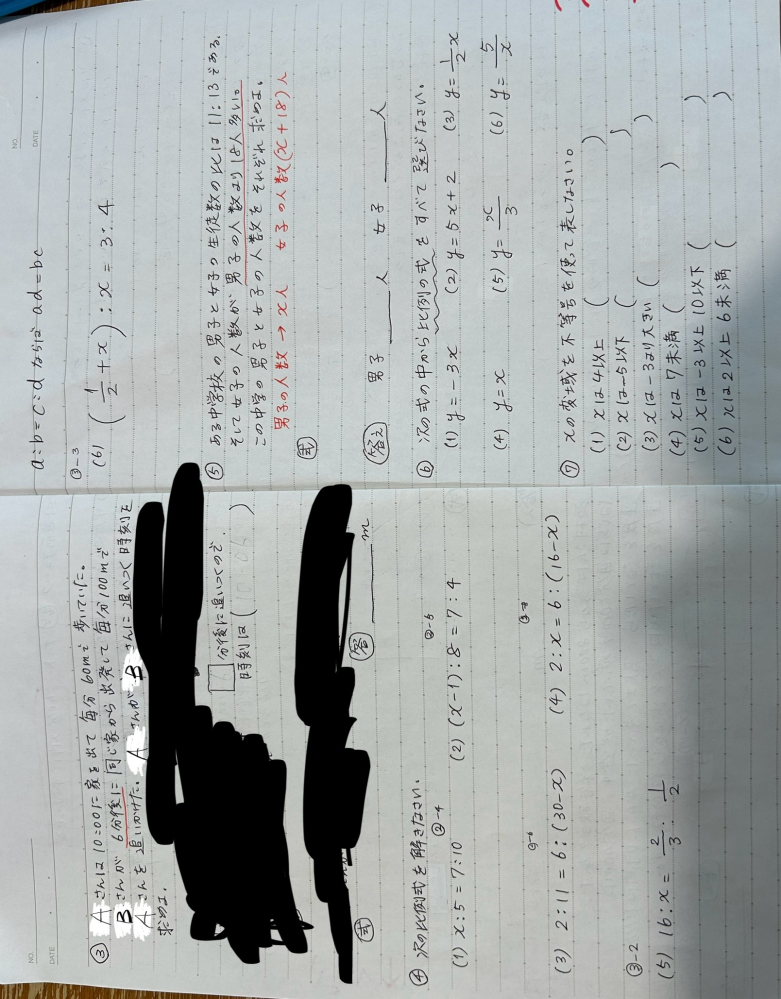 NO.
DATE
③ Aさんは10:00に家を出て 毎分 60mで 歩いていた。
Bさんが 6分後に 同じ家から出発して 毎分100mで
Aさんを 追いかけた。AさんがBさんに 追いつく 時刻を
求めよ。
□分後に追いつくので
時刻は ( )
式
答 m
④ 次の比例式を解きなさい。
(1) x:5=7:10
②-4
(2) (x-1):8=7:4
②-6
(3) 2:11=6:(30-x)
(4) 2:x=6:(16-x)
③-2
(5) 16:x= 2/3 : 1/2
NO.
DATE
a:b=c:d ならば ad=bc
③-3
(6) (1/2+x):x=3:4
⑤ ある中学校の男子と女子の生徒数の比は 11:13である。
そして女子の人数が、男子の人数より18人多い。
この中学の男子と女子の人数を それぞれ 求めよ。
男子の人数→x人 女子の人数(x+18)人
式
答え 男子 人 女子 人
⑥ 次の式の中から比例の式を すべて 選びなさい。
(1) y=-3x (2) y=5x+2 (3) y=1/2x
(4) y=x (5) y=x/3 (6) y=5/x
⑦ xの変域を不等号を使って表しなさい。
(1) xは4以上 ( )
(2) xは-5以下 ( )
(3) xは-3より大きい ( )
(4) xは7未満 ( )
(5) xは-3以上10以下 ( )
(6) xは2以上6未満 ( )